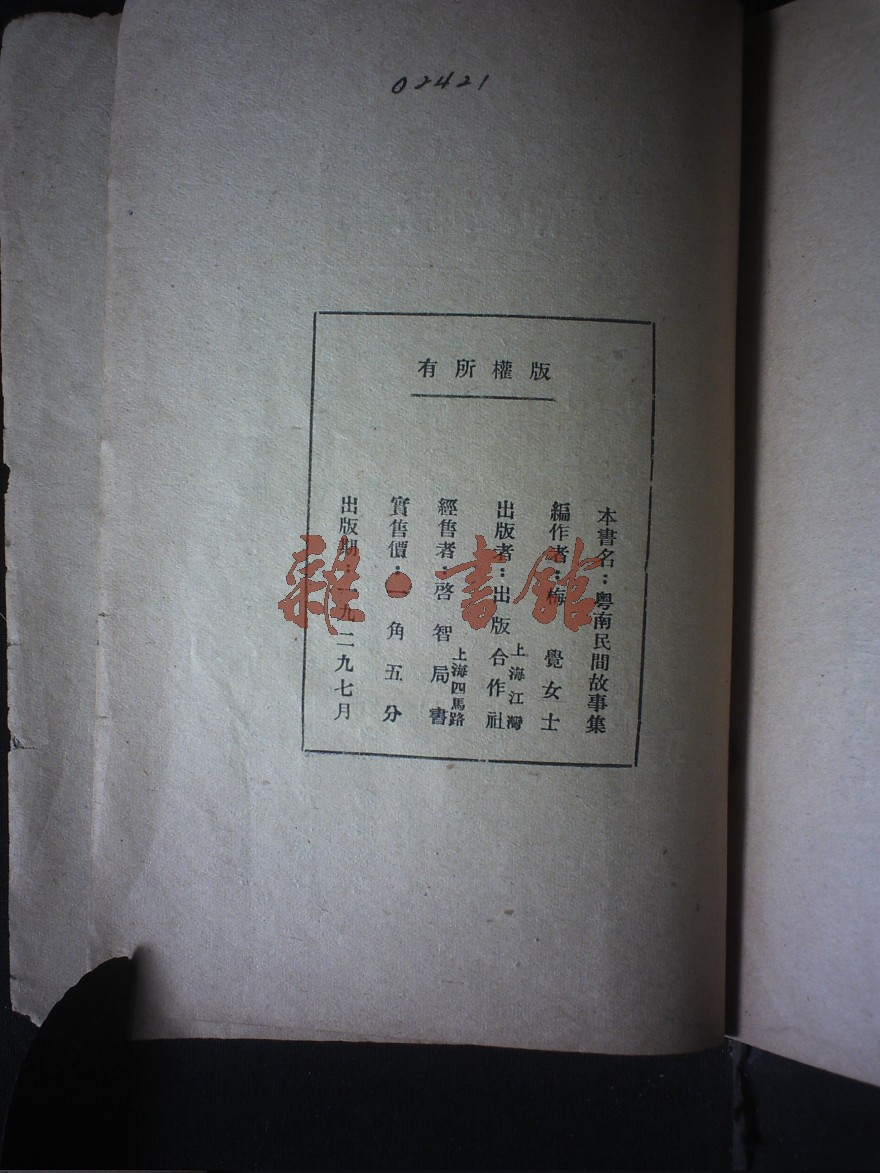 02421
版權所有
本書名：粵南民間故事集
編作者：梅覺女士
上海江灣
出版者：出版合作社
上海四馬路
經售者：啓智局書
實售價：一角五分
出版期：一九二九七月
雜·書館